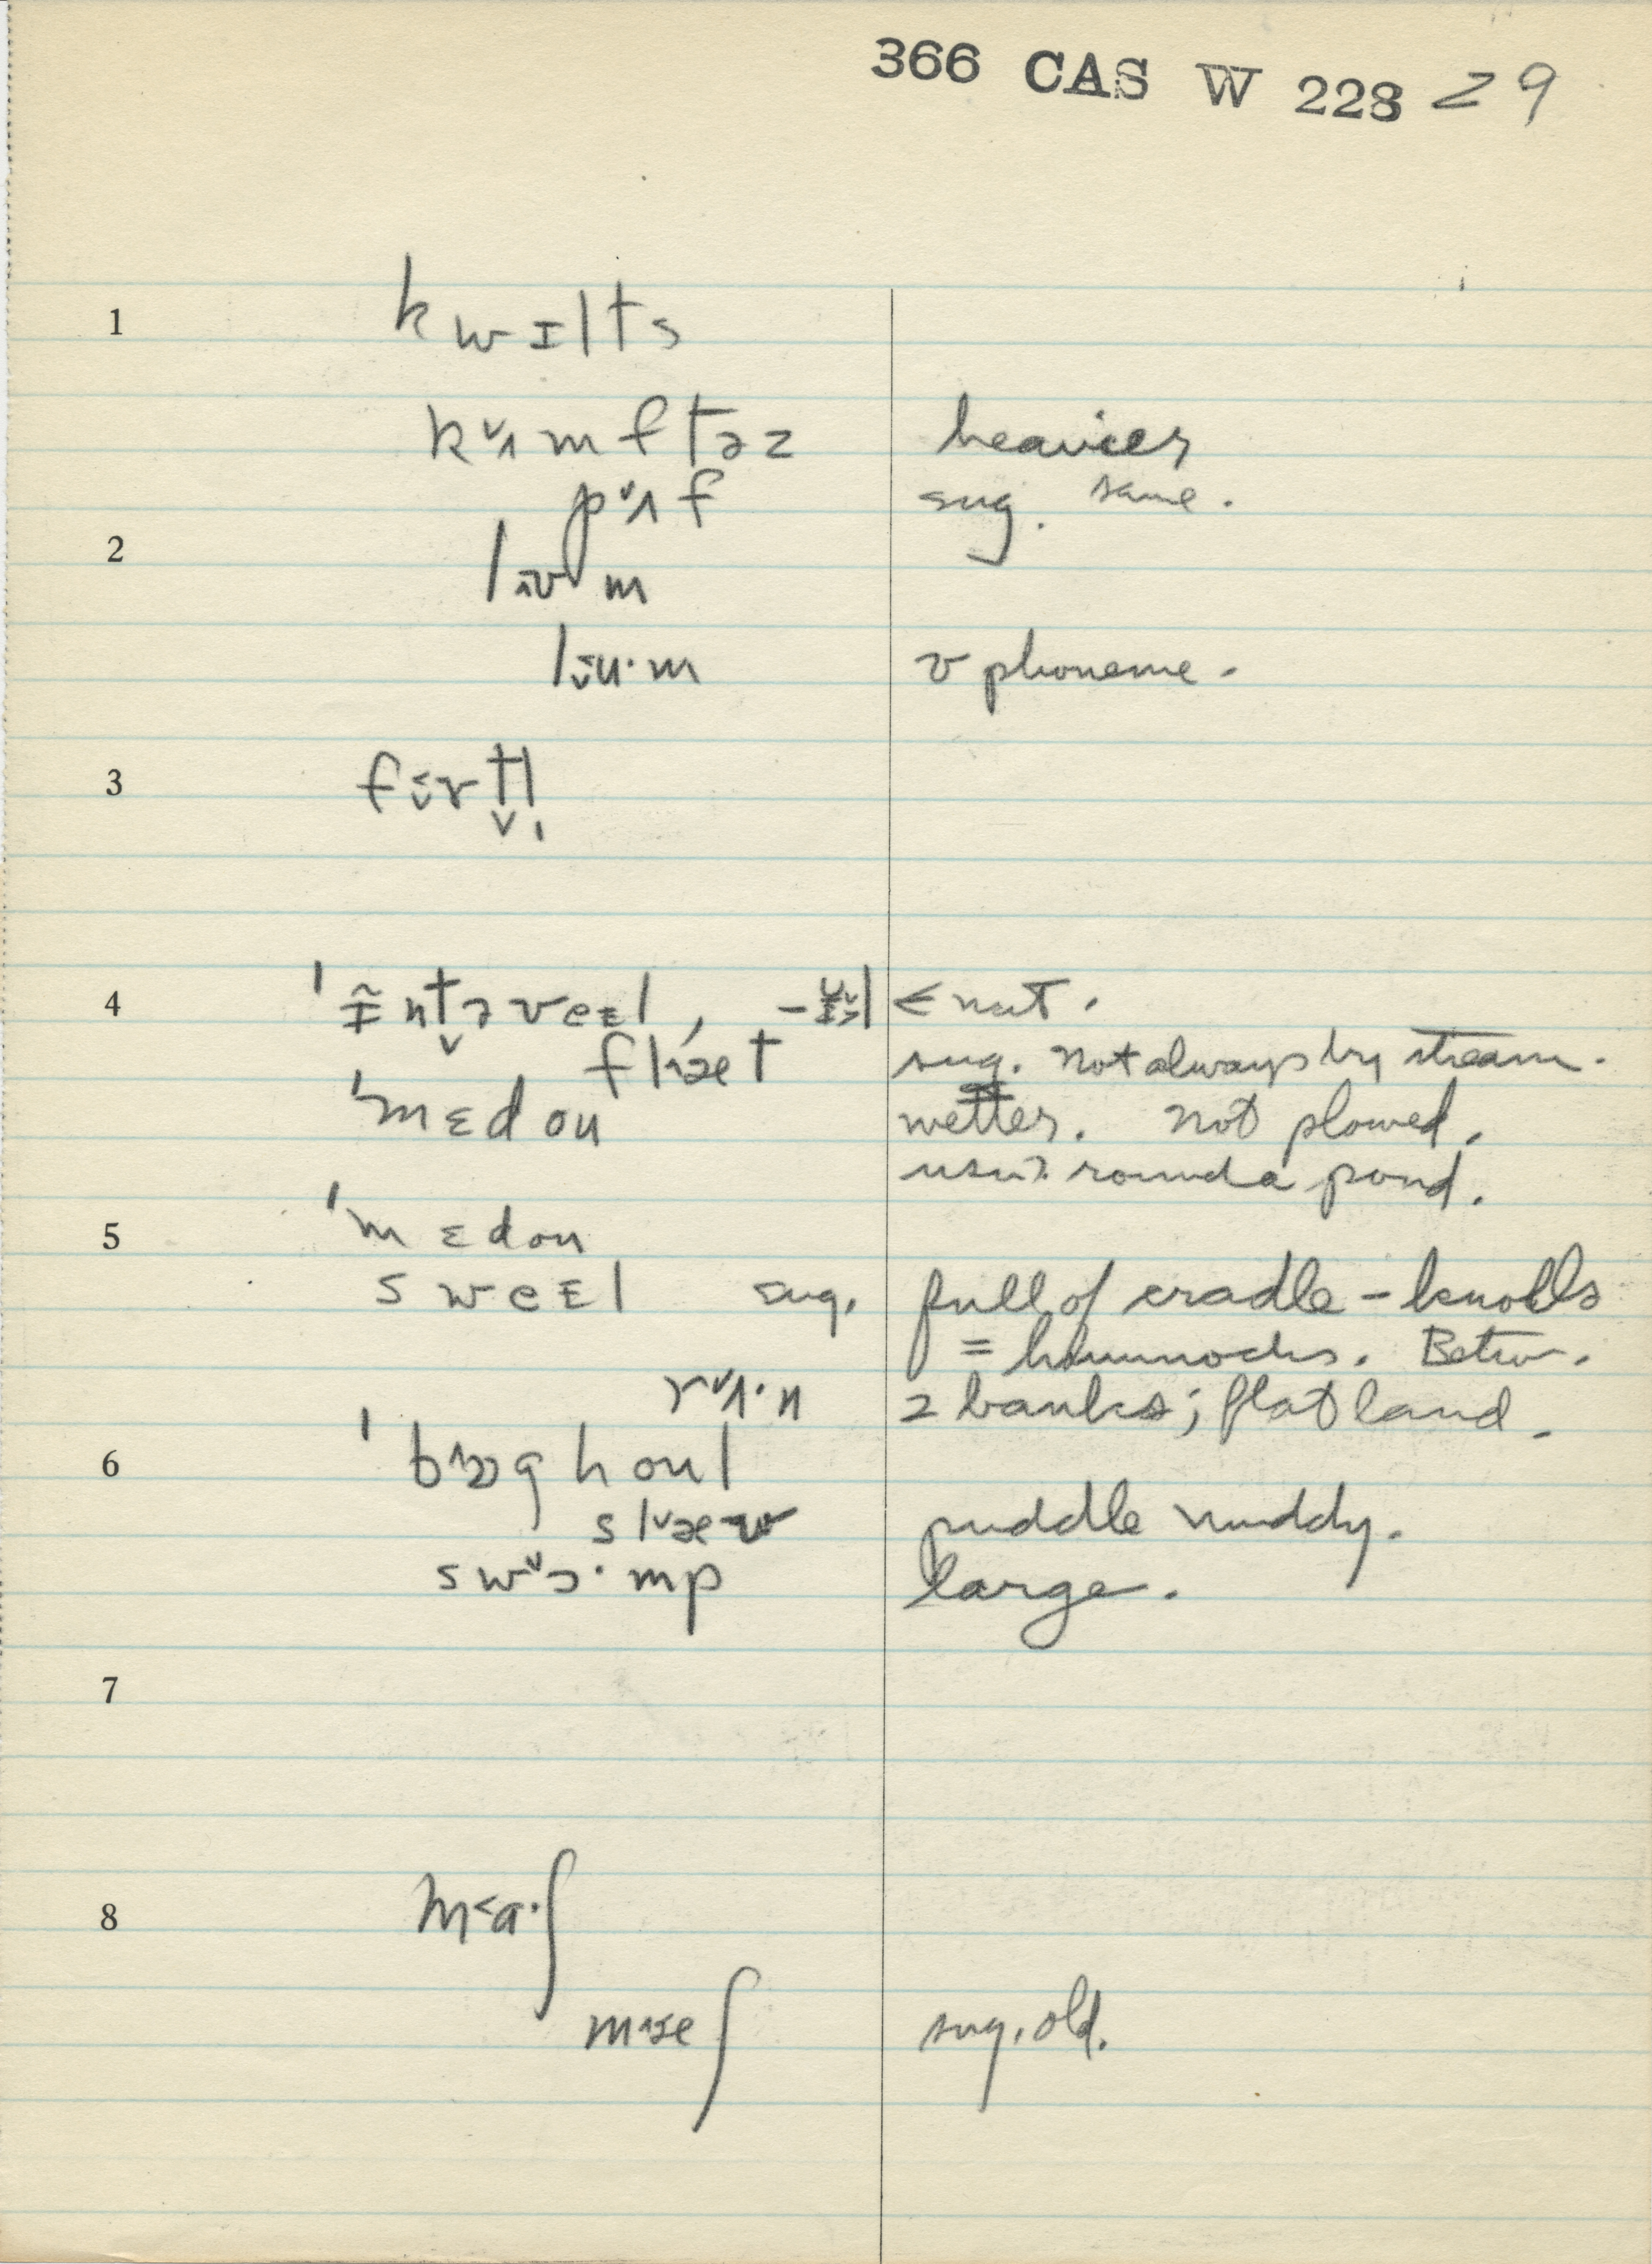 366 CAS W 228 29
1 kwɪlts
kʌ˅mftəz heavier
pʌ˅f sug. same.
2 m
m phoneme.
3
4 ˈɪ̃ntəveɛl, < nut.
flæt sug. Not always by stream.
ˈmɛdoʊ wetter. Not plowed.
round a pond.
5 ˈmɛdoʊ
sweɛl sug. full of cradle-knolls
= hummocks. Betw.
rʌ˅·n 2 banks; flat land.
6 ˈbɒghoʊl
slæ puddle muddy.
swɒ˅·mp large.
7
8 m˂a·ʃ
mæʃ sug. old.